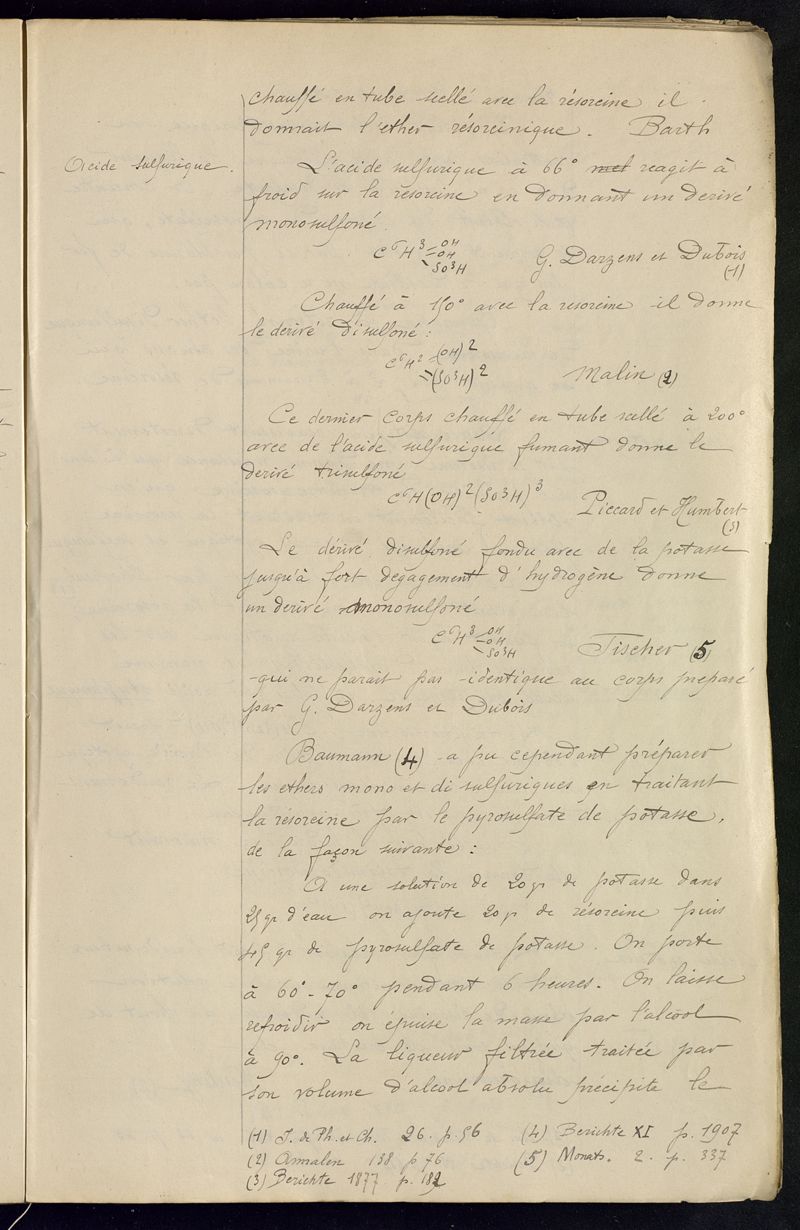 chauffé en tube scellé avec la résorcine il
donnait l'ether résorcinique. Barth
Acide sulfurique.
L'acide sulfurique à 66° reagit à
froid sur la resorcine en donnant un derivé
monosulfoné.
C⁶H³ OH OH SO³H
G. Darzens et Dubois
(1)
Chauffé à 150° avec la resorcine il donne
le derivé disulfoné :
C⁶H² (OH)² (SO³H)²
Malin (2)
Ce dernier corps chauffé en tube scellé à 200°
avec de l'acide sulfurique fumant donne le
derivé trisulfoné
C⁶H(OH)²(SO³H)³
Piccard et Humbert
(3)
Le dérivé disulfoné fondu avec de la potasse
jusqu'à fort dégagement d'hydrogène donne
un derivé monosulfoné
C⁶H³ OH OH SO³H
Tischer (5)
qui ne parait pas identique au corps preparé
par G. Darzens et Dubois
Baumann (4) a pu cependant préparer
les ethers mono et di sulfuriques en traitant
la résorcine par le pyrosulfate de potasse,
de la façon suivante :
A une solution de 20 gr de potasse dans
25 gr d'eau on ajoute 20 gr de résorcine puis
45 gr de pyrosulfate de potasse. On porte
à 60°-70° pendant 6 heures. On laisse
refroidir on épuise la masse par l'alcool
à 90°. La liqueur filtrée traitée par
son volume d'alcool absolu précipite le
(1) J. de Ph. et Ch. 26. p. 56
(2) Annalen 138 p 76
(3) Berichte 1877 p. 182
(4) Berichte XI p. 1907
(5) Monats. 2. p. 337